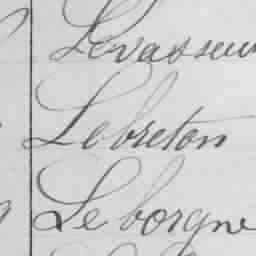 Levasseur
Lebreton
Le borgne